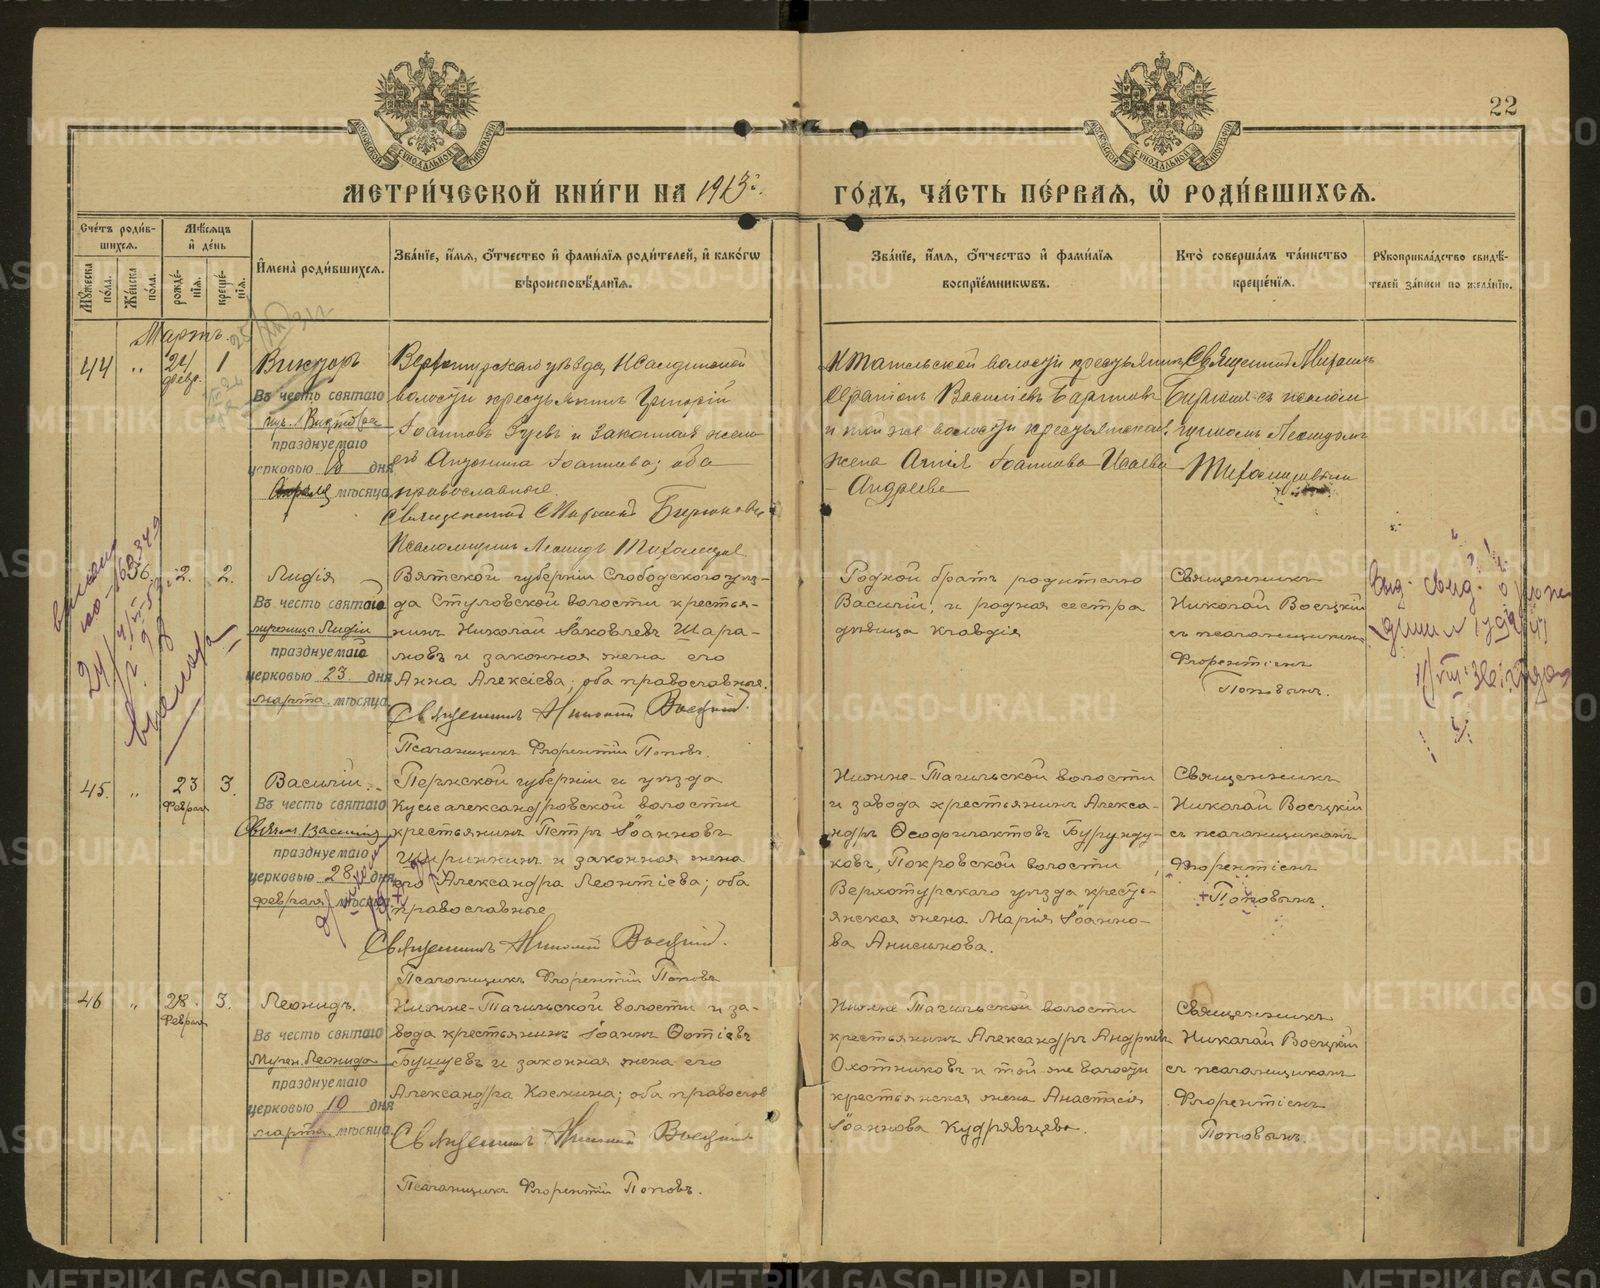 22
МЕТРИ́ЧЕСКОЙ КНИ́ГИ НА 1913 г.
ГО́ДЪ, ЧА́СТЬ ПЕ́РВАЯ, Ѡ РОДИ́ВШИХСЯ.
Сче́тъ роди́вшихся.
Мѣ́сяцъ и де́нь
Мꙋ́жеска по́ла.
Же́нска по́ла.
рожде́нїя.
креще́нїя.
И҆мена̀ роди́вшихся.
Зва́нїе, и҆́мя, ѻ҆́тчество и҆ фами́лїя роди́телей, и҆ како́гѡ вѣроисповѣ́данїя.
Зва́нїе, и҆́мя, ѻ҆́тчество и҆ фами́лїя воспрїе́мниковъ.
Кто̀ соверша́лъ та́инство креще́нїя.
Рꙋкоприкла́дство свидѣ́телей за́писи по жела́нїю.
Мартъ.
44 " 24 февр. 1
Викторъ
Въ честь святаго
муч. Виктора
празднуемаго
церковью 18 дня
мѣсяца
Верхотурскаго уѣзда, Исалдинской
волости крестьянин Григорій
Іоанновъ Гуевъ и законная жена
его Антонина Іоаннова; оба
православные.
Священник Михаил Бирюковъ
Псаломщик Леонидъ Тихомиров
волости крестьянин
Серапіон Василіевъ
и той же волости крестьянская
жена Агнія Іоаннова
Андреева
Священник Михаил
Бирюков с псаломщиком Леонидом
Тихомировым
36. 2. 2.
Лидія
Въ честь святаго
мученицы Лидіи
празднуемаго
церковью 23 дня
марта мѣсяца
Вятской губерніи Слободского уѣзда
Стуловской волости крестьянинъ
Николай Яковлевъ Шараповъ
и законная жена его
Анна Алексіева; оба православные.
Священник Николай Воецкій.
Псаломщикъ Флорентій Поповъ.
Родной братъ родителю
Василій, и родная сестра
дѣвица Клавдія
Священникъ
Николай Воецкій
съ псаломщикомъ
Флорентіемъ
Поповымъ.
45. " 23 Февраля 3.
Василій.
Въ честь святаго
Свящ.муч. Василія
празднуемаго
церковью 28 дня
февраля мѣсяца
Пермской губерніи и уѣзда
Кусьеалександровской волости
крестьянинъ Петръ Іоанновъ
Ширинкинъ и законная жена
его Александра Леонтіева; оба
православные
Священник Николай Воецкій.
Псаломщикъ Флорентій Поповъ
Нижне-Тагильской волости
и завода крестьянинъ Алекса-
ндръ Ѳеофилактовъ Бурунду-
ковъ, Покровской волости
Верхотурскаго уѣзда кресть-
янская жена Марія Іоанно-
ва Анисимова.
Священникъ
Николай Воецкій
съ псаломщикомъ
Флорентіемъ
Поповымъ.
46 " 28. Февраля 3.
Леонидъ.
Въ честь святаго
Мучен. Леонида
празднуемаго
церковью 10 дня
марта мѣсяца
Нижне-Тагильской волости и за-
вода крестьянинъ Іоаннъ Фотіевъ
Бушуевъ и законная жена его
Александра Космина; оба православ
Священник Николай Воецкій
Псаломщикъ Флорентій Поповъ.
Нижне Тагильской волости
крестьянинъ Александръ Андреевъ
Охотниковъ и той же волости
крестьянская жена Анастасія
Іоаннова Кудрявцева.
Священникъ
Николай Воецкій
съ псаломщикомъ
Флорентіемъ
Поповымъ.
METRIKI.GASO-URAL.RU